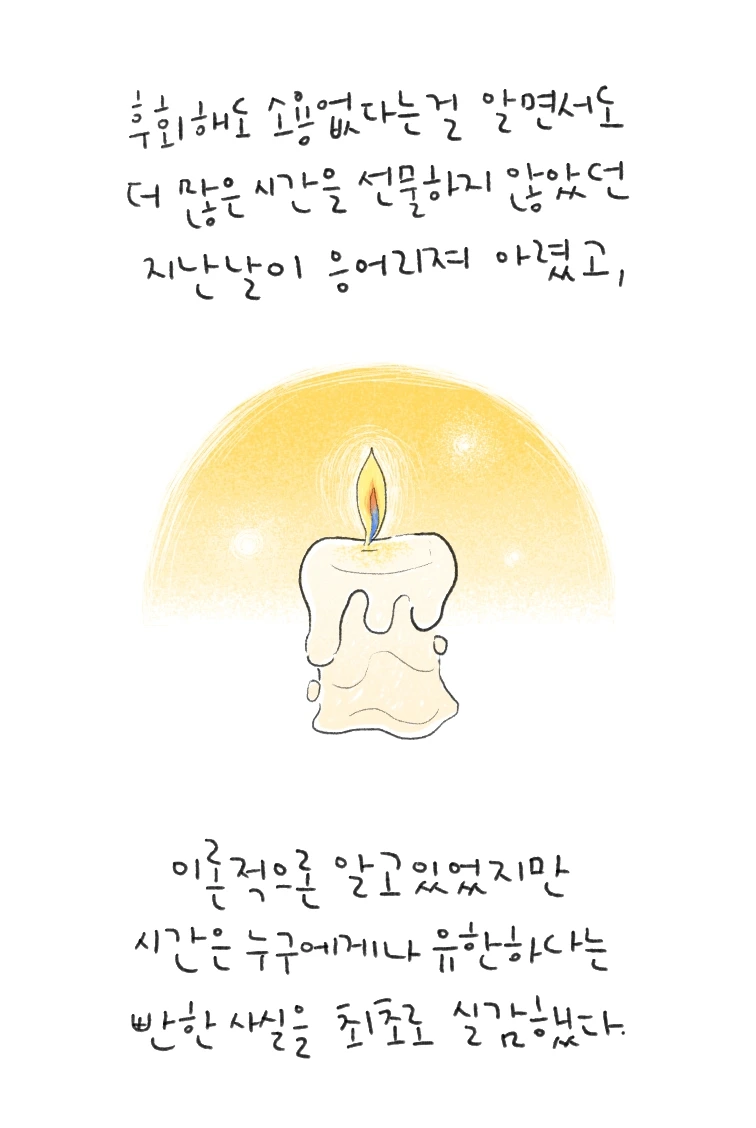 후회해도 소용없다는걸 알면서도
더 많은 시간을 선물하지 않았던
지난날이 응어리져 아렸고,
이론적으론 알고있었지만
시간은 누구에게나 유한하다는
빤한 사실을 최초로 실감했다.